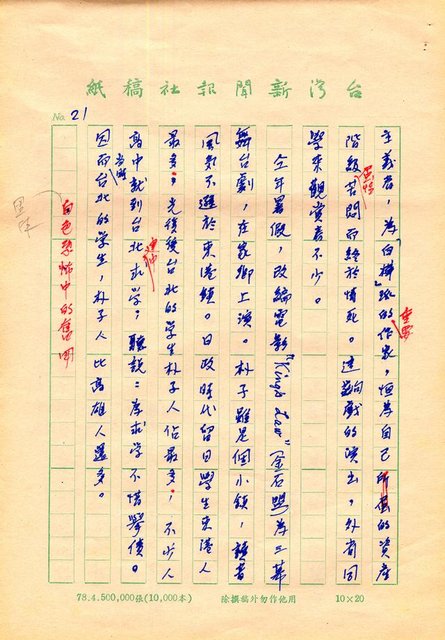 台灣新聞報社稿紙
No. 21
主義者，為「白樺」派的作家，恒為自己所屬的資產
階級苦悶而終於情死。這齣戲的演出，外省同
學來觀賞者不少。
今年暑假，改編電影"Kings Law"金石盟為三幕
舞台劇，在家鄉上演。朴子雖是個小鎮，讀書
風氣不遜於東港鎮。日政時代留日學生東港人
最多，光復後台北的學生朴子人佔最多，不少人
高中就到台北求學，聽說：為求學不惜舉債。
因而台北的學生，朴子人比高雄人還多。
白色恐怖中的奮鬥
78.4.500,000張(10,000本)
除撰稿外勿作他用
10×20